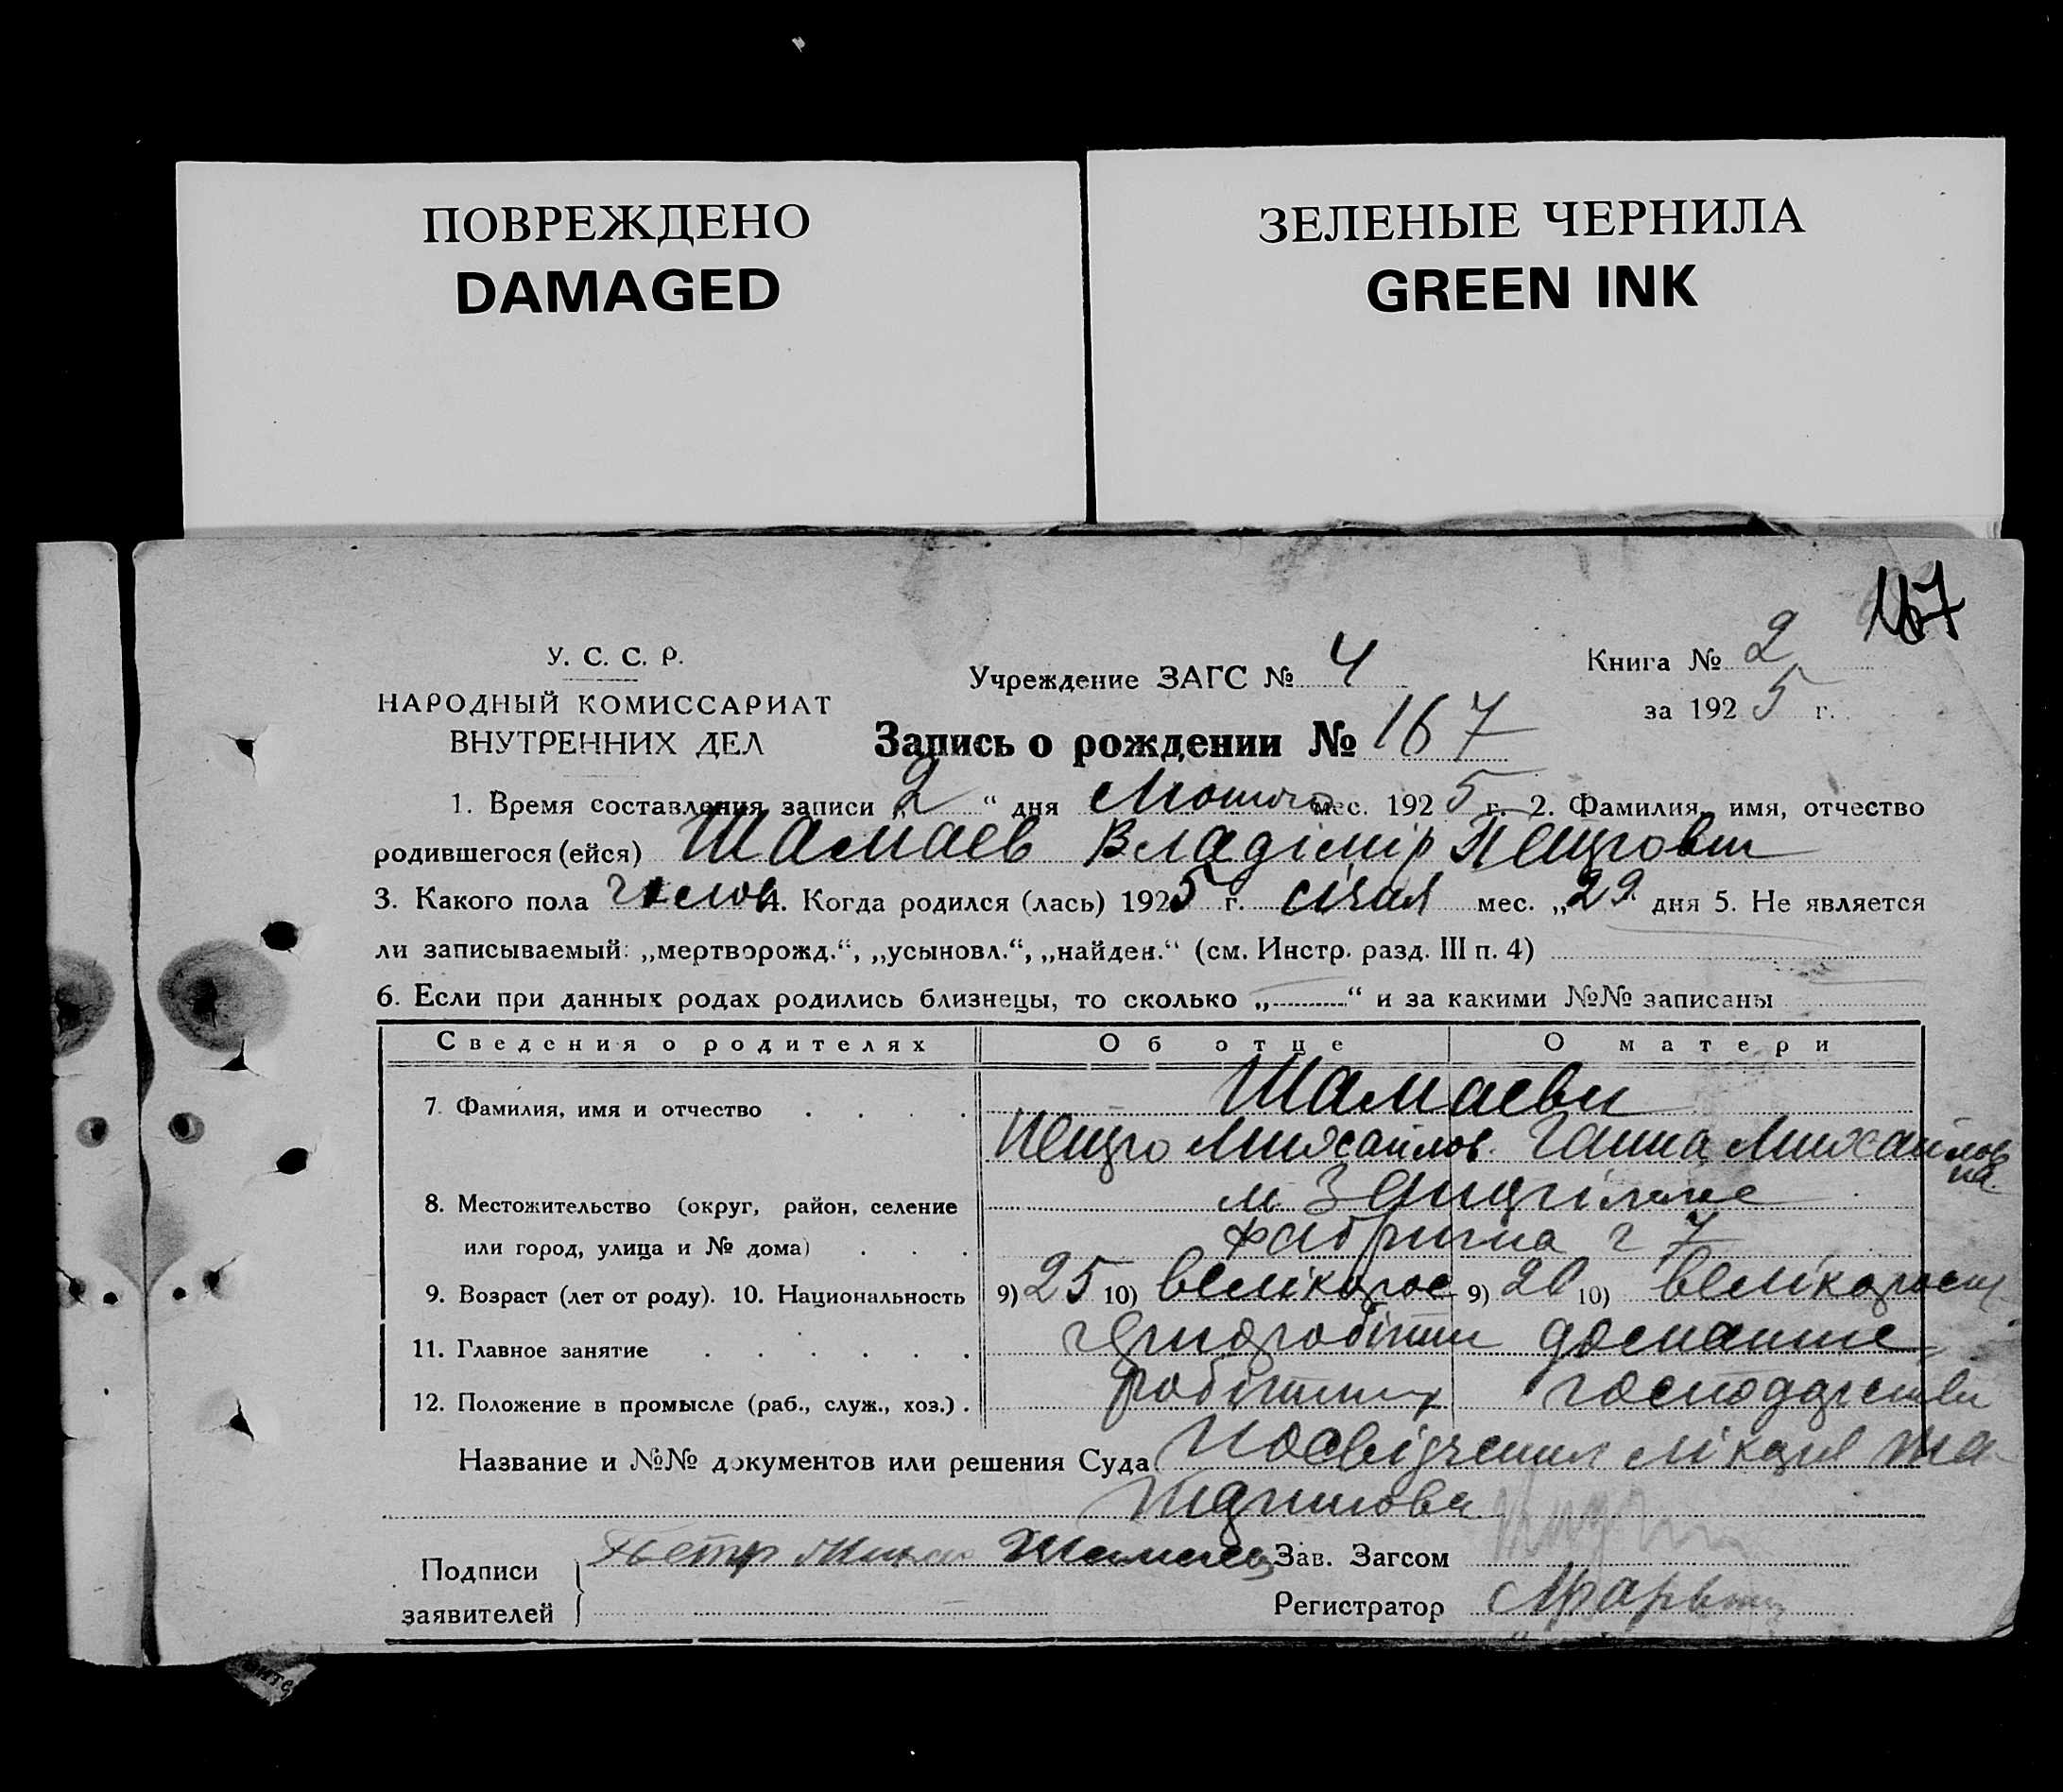 ПОВРЕЖДЕНО
DAMAGED
ЗЕЛЕНЫЕ ЧЕРНИЛА
GREEN INK
167
У. С. С. Р.
НАРОДНЫЙ КОМИССАРИАТ
ВНУТРЕННИХ ДЕЛ
Учреждение ЗАГС № 4
Книга № 2
за 1925 г.
Запись о рождении № 167
1. Время составления записи „2“ дня Лютого мес. 1925 г. 2. Фамилия, имя, отчество
родившегося (ейся) Шамаев Владімір Петрович
3. Какого пола чолов 4. Когда родился (лась) 1925 г. січня мес. „29 дня 5. Не является
ли записываемый: „мертворожд.“, „усыновл.“, „найден.“ (см. Инстр. разд. III п. 4)
6. Если при данных родах родились близнецы, то сколько „ “ и за какими №№ записаны
Сведения о родителях Об отце О матери
7. Фамилия, имя и отчество Шамаеви
Петро Михайлов. Ганна Михайловна
8. Местожительство (округ, район, селение м
или город, улица и № дома) Фабрична ч 7
9. Возраст (лет от роду). 10. Национальность 9) 25 10) великорос 9) 20 10) великорос
11. Главное занятие чорноробіти домашнє
12. Положение в промысле (раб., служ., хоз.) робітник господарство
Название и №№ документов или решения Суда Посвідчення лікаря
Подписи
заявителей
Петр Шамаев
Зав. Загсом
Регистратор